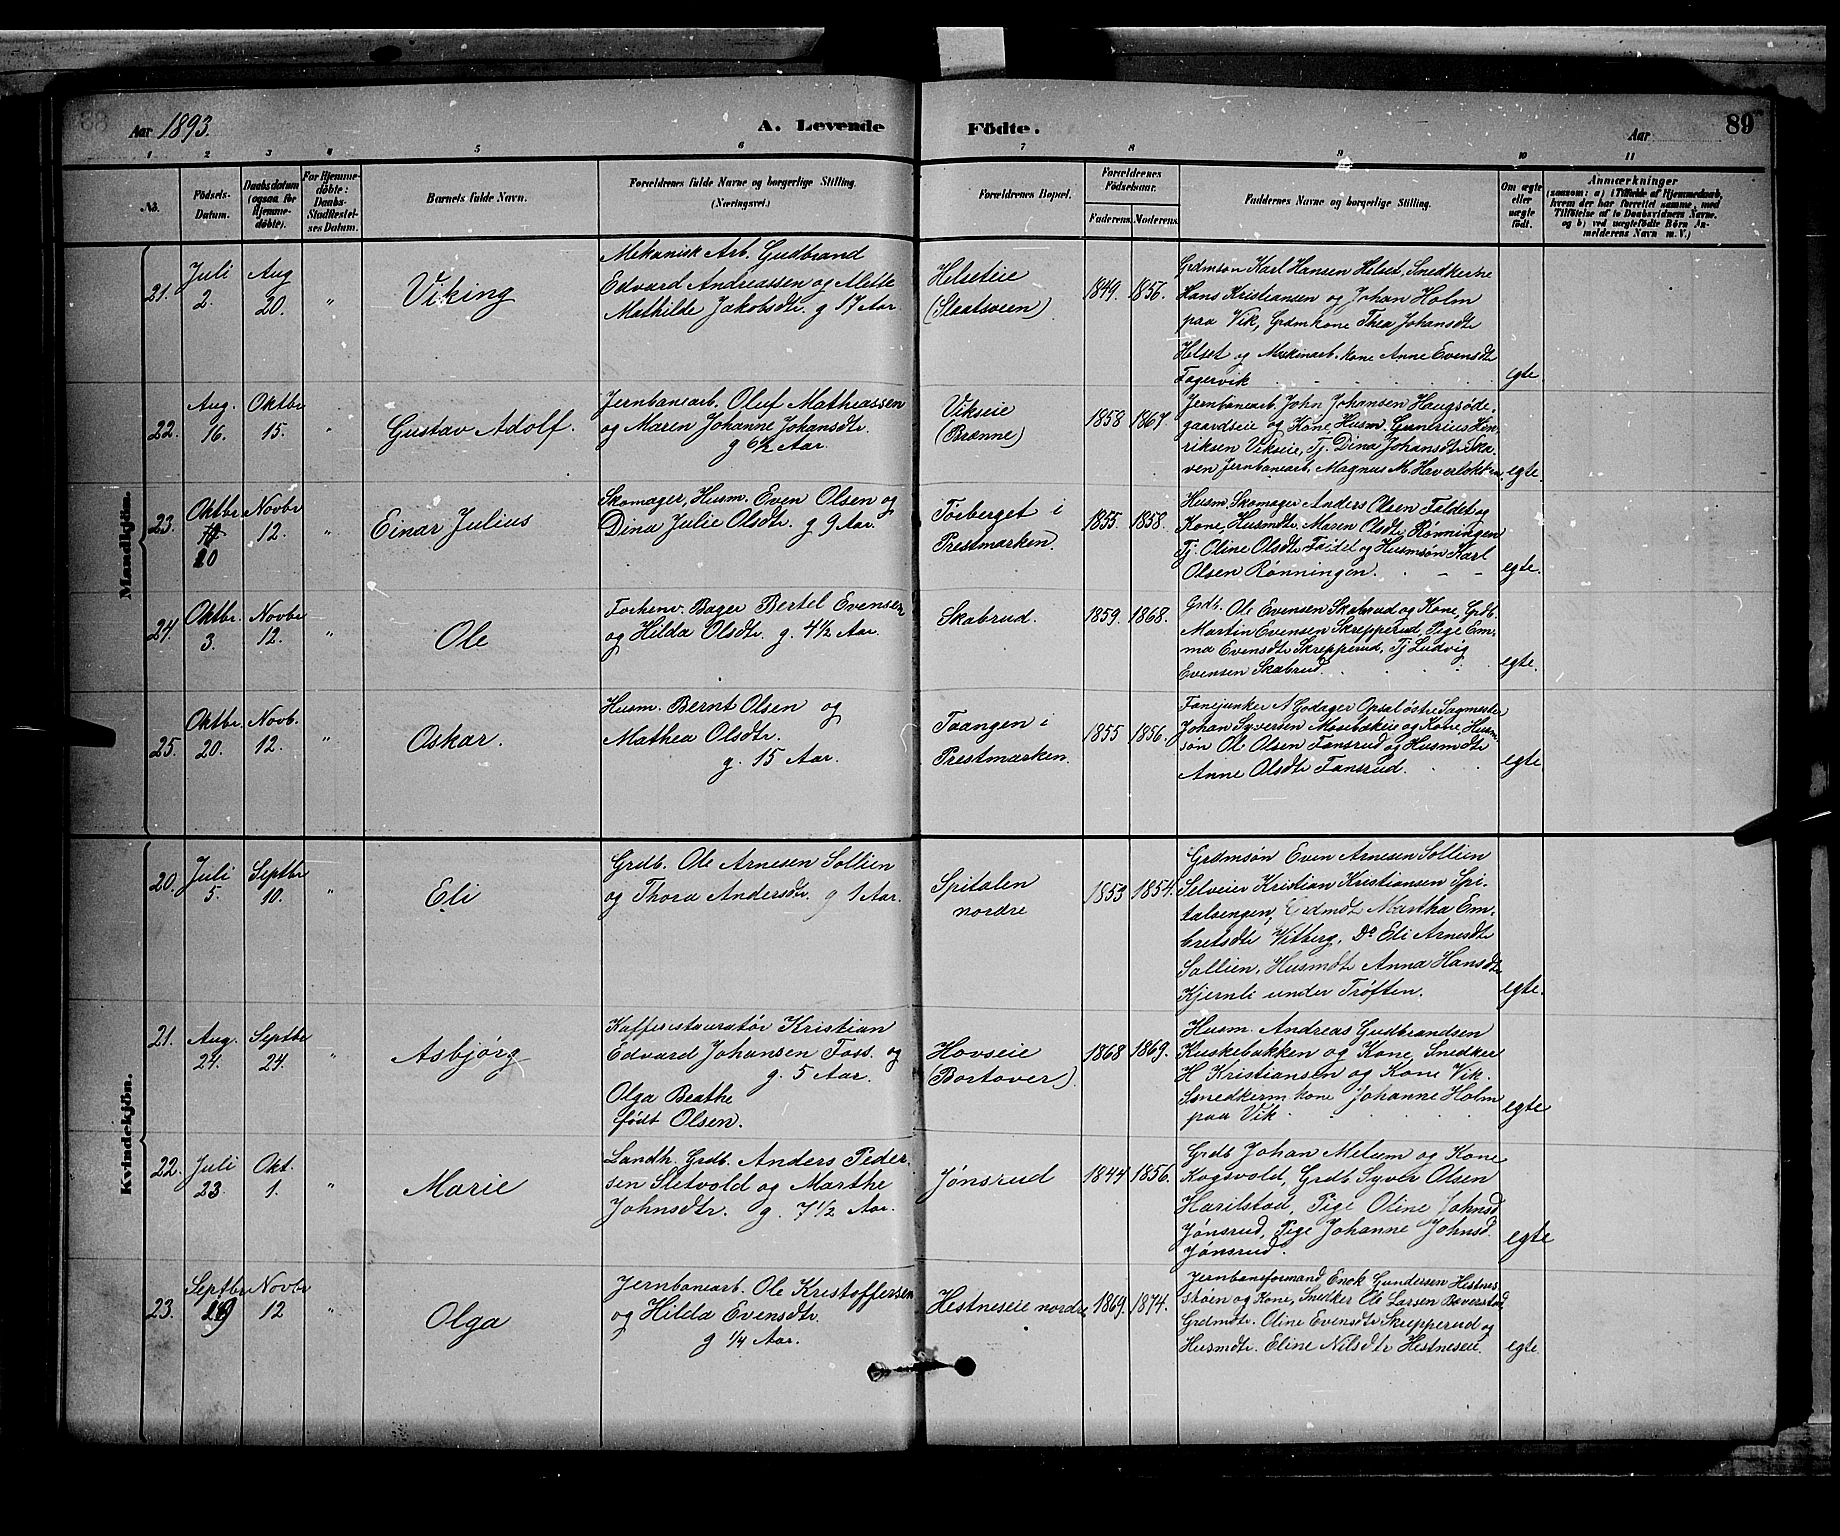 88
Aar 1893.
A. Levende
Födte.
Aar
89
1 2 3 4 5 6 7 8 9 10 11
No.
Födsels-Datum.
Daabsdatum (ogsaa for Hjemmedøbte).
For Hjemmedøbte: Daabs-Stadfæstelses Datum.
Barnets fulde Navn.
Forældrenes fulde Navne og borgerlige Stilling. (Næringsvei.)
Forældrenes Bopæl.
Forældrenes Födselsaar.
Faderens. Moderens.
Faddernes Navne og borgerlige Stilling.
Om ægte eller uægte født.
Anmærkninger
(saasom: a) i Tilfælde af Hjemmedaab,
hvem der har forrettet samme, med
Tilføielse af to Daabsvidners Navne,
og b) ved uægtefødte Børn An-
melderens Navn m. V.)
Mandkjön.
21.
Juli 2.
Aug 20.
"
Viking
Mekanisk Arb. Gudbrand
Edvard Andreassen og Alette
Mathilde Jakobsdtr. g 17 Aar.
Helseteie
(Slaatsveen)
1849. 1856.
Grdmsøn Karl Hansen Helset, Snedkerne
Hans Kristiansen og Johan Holm
paa Vik, Grdmkone Thea Johansdtr
Helset og Maskinarb. kone Anne Evensdtr
Fagervik
egte.
22.
Aug. 16.
Oktbr 15.
"
Gustav Adolf.
Jernbanearb. Oluf Mathiassen
og Maren Johanne Johansdtr.
g 6½ Aar.
Vikseie
(Brænne)
1858 1867.
Jernbanearb. John Johansen Haugsøde-
gaardseie og Kone, Husm. Gunerius Hen-
riksen Vikseie, Tj. Dina Johansdtr Ska-
ven Jernbanearb. Magnus M.
egte.
23.
Oktbr 20
Novbr 12.
"
Einar Julius
Skomager, Husm. Even Olsen og
Dina Julie Olsdtr. g 9 Aar.
Torberget i
Prestmarken.
1855. 1858.
Husm. Skomager Anders Olsen Faldet og
Kone, Husmdtr. Maren Olsdtr Rønningen
Tj. Oline Olsdtr Faldet og Husmsøn Karl
Olsen Rønningen.
egte.
24.
Oktbr. 3.
Novbr 12.
"
Ole
Forhenv. Bager Bertel Evensen
og Hilda Olsdtr. g. 4½ Aar.
Skabrud.
1859. 1868.
Grdb. Ole Evensen Skabrud og Kone, Grdb.
Martin Evensen Skrepperud, Pige Em-
ma Evensdtr Skrepperud, Tj Ludvig
Evensen Skabrud.
egte.
25.
Oktbr. 20.
Novb. 12.
"
Oskar.
Husm. Bernt Olsen og
Mathea Olsdtr.
g. 15 Aar.
Taangen i
Prestmarken.
1855 1856.
Fanejunker A Godager Opsal østre Sagmester
Johan Syversen Mosebækeie og Kone, Hus-
søn Ole Olsen Fonsrud og Husmdtr
Anne Olsdtr Fonsrud.
egte
Kvindekjön.
20.
Juli 5.
Septbr 10.
"
Eli
Grdb. Ole Arnesen Sollien
og Thora Andersdtr. g 1 Aar.
Spitalen
nordre
1853 1854.
Grdmsøn Even Arnesen Sollien
Selveier Kristian Kristiansen Spi-
talsengen, Grdmdtr Martha Em-
bretsdtr Vitberg, Do Eli Arnesdtr
Sollien, Husmdtr Anna Hansdtr
Kjernli under Trøften.
egte.
21.
Aug. 24.
Septbr 24.
"
Asbjørg
Kafferestauratør Kristian
Edvard Johansen Foss. og
g. 5 Aar.
Olga Beathe
født Olsen.
Hovseie
(Bortover)
1868 1869.
Husm. Andreas Gudbrandsen
Kuskebakken og Kone, Snedker
H Kristiansen og Kone Vik.
Snedkerm kone Johanne Holm
paa Vik
egte
22.
Juli 23.
Okt. 1.
"
Marie
Landh. Grdb. Anders Peder-
sen Sletvold og Marthe
Johnsdtr. g. 7½ Aar.
Jønsrud
1844 1856.
Grdb Johan Melum og Kone
Kogsvold, Grdb Syver Olsen
Harilstad, Pige Oline Johnsd
Jønsrud, Pige Johanne Johnsd.
Jønsrud.
egte
23.
Septbr 19
Novbr 12
"
Olga
Jernbanearb. Ole Kristoffersen
og Hilda Evensdtr.
g ¼ Aar.
Hestneseie nordre
1869. 1874.
Jernbaneformand Enok Gundersen Hestnes
støen og Kone, Snedker Ole Larsen Bæverstad
Grdmdtr. Oline Evensdtr Skrepperud og
Husmdtr. Eline Nilsdtr Hestneseie.
egte.